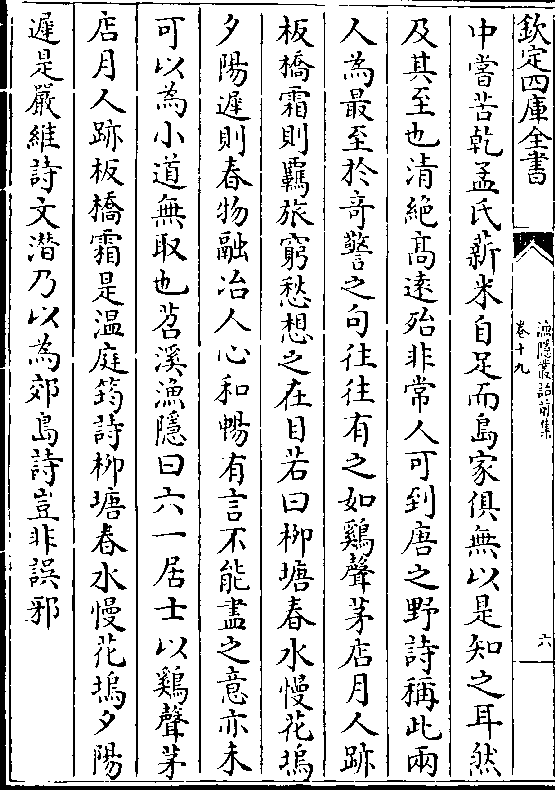 欽定四庫全書
漁隱叢話前集
卷十九
六
中嘗苦乾孟氏薪米自足而島家俱無以是知之耳然
及其至也清絶髙逺殆非常人可到唐之野詩稱此兩
人為最至於竒警之句往往有之如鷄聲茅店月人跡
板橋霜則羈旅窮愁想之在目若曰栁塘春水慢花塢
夕陽遲則春物融冶人心和暢有言不能盡之意亦未
可以為小道無取也苕溪漁隱曰六一居士以鷄聲茅
店月人跡板橋霜是温庭筠詩栁塘春水慢花塢夕陽
遲是嚴維詩文潛乃以為郊島詩豈非誤邪